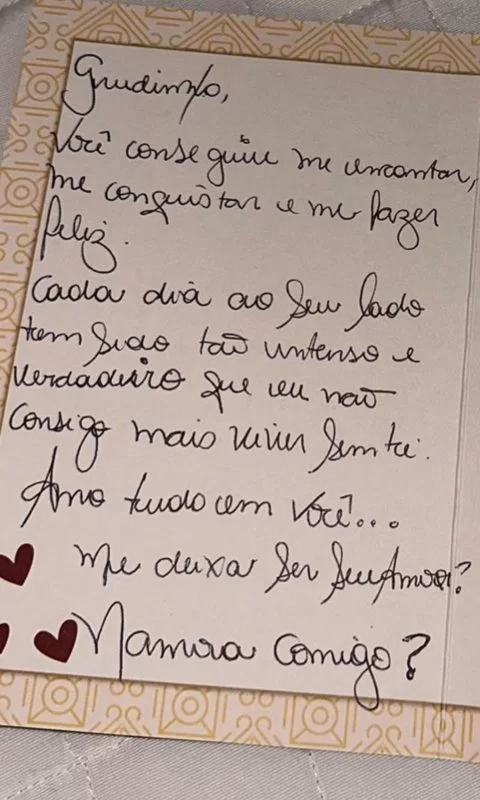 Grudinho,
Você conseguiu me encantar,
me conquistar e me fazer
feliz.
Cada dia ao seu lado
tem sido tão intenso e
verdadeiro que eu não
consigo mais viver sem ti.
Amo tudo em você...
Me deixa ser seu Amor?
Namora Comigo?